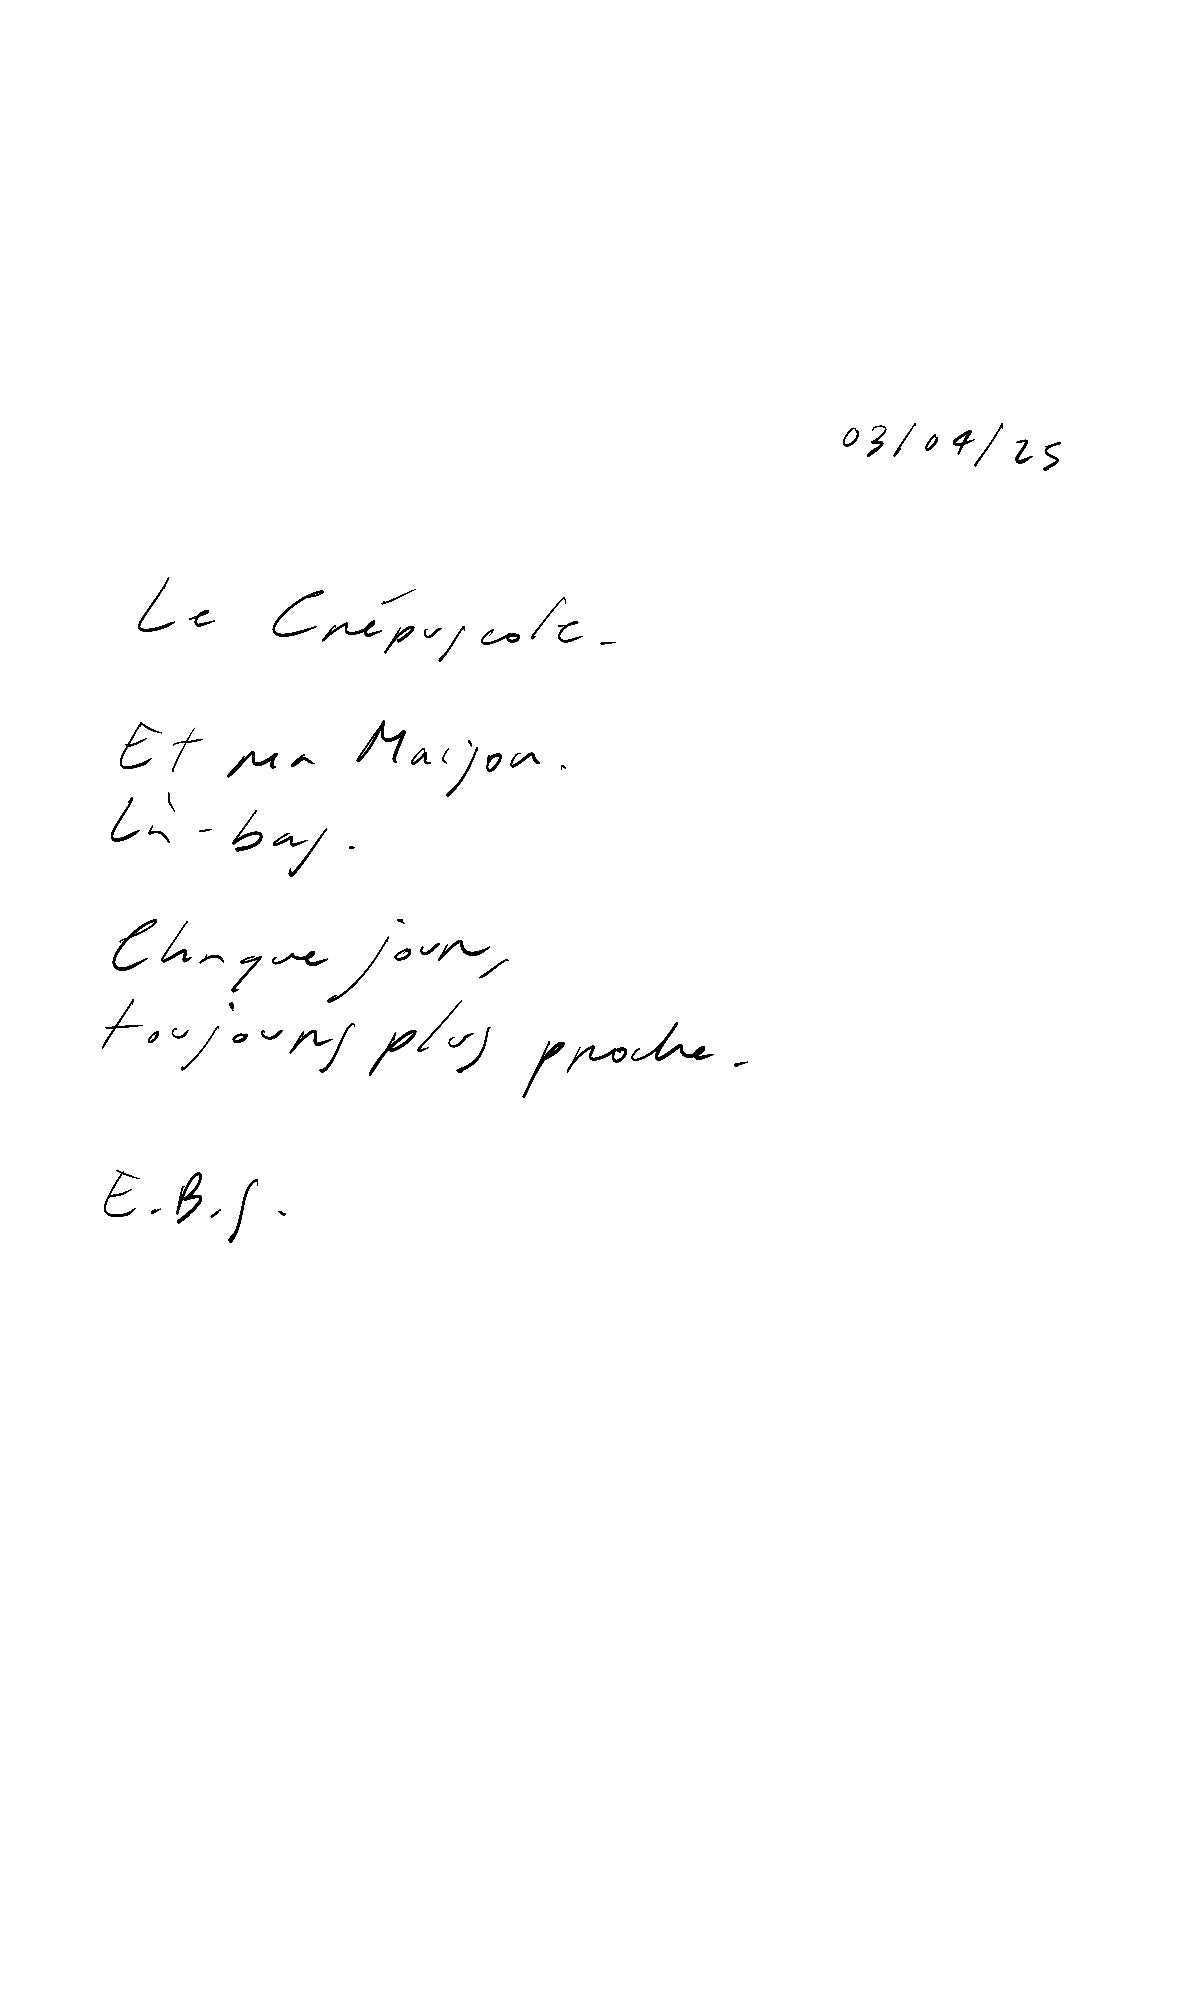 03/04/25
Le Crépuscole.
Et ma Maison.
Là-bas.
Chaque jour,
toujours plus proche.
E.B.S.